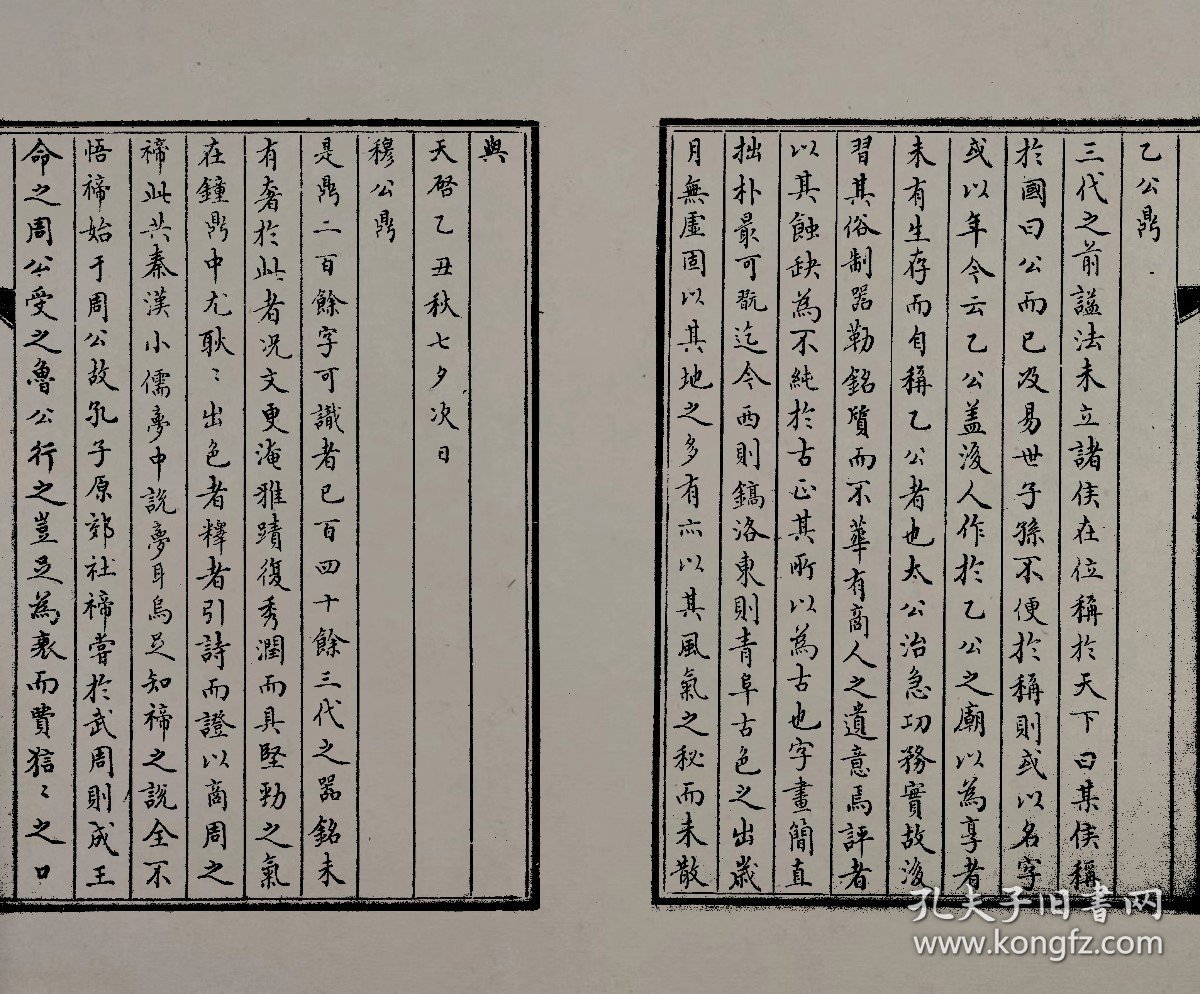 乙公鼎
三代之前諡法未立諸侯在位稱於天下曰某侯稱
於國曰公而已及易世子孫不便於稱則或以名字
或以年今云乙公蓋後人作於乙公之廟以為享者
未有生存而自稱乙公者也太公治急功務實故後
習其俗制器勒銘質而不華有商人之遺意焉評者
以其蝕缺為不純於古正其所以為古也字畫簡直
拙朴最可翫迄今西則鎬洛東則青阜古色之出歲
月無虛固以其地之多有亦以其風氣之秘而未散
與
天啓乙丑秋七夕次日
穆公鼎
是鼎二百餘字可識者已百四十餘三代之器銘未
有奢於此者况文更淹雅蹟復秀潤而具堅勁之氣
在鐘鼎中尤耿〻出色者釋者引詩而證以商周之
禘此共秦漢小儒夢中說夢耳烏足知禘之說全不
悟禘始于周公故孔子原郊社禘嘗於武周則成王
命之周公受之魯公行之豈足為褒而費狺〻之口
孔夫子旧书网
www.kongfz.com